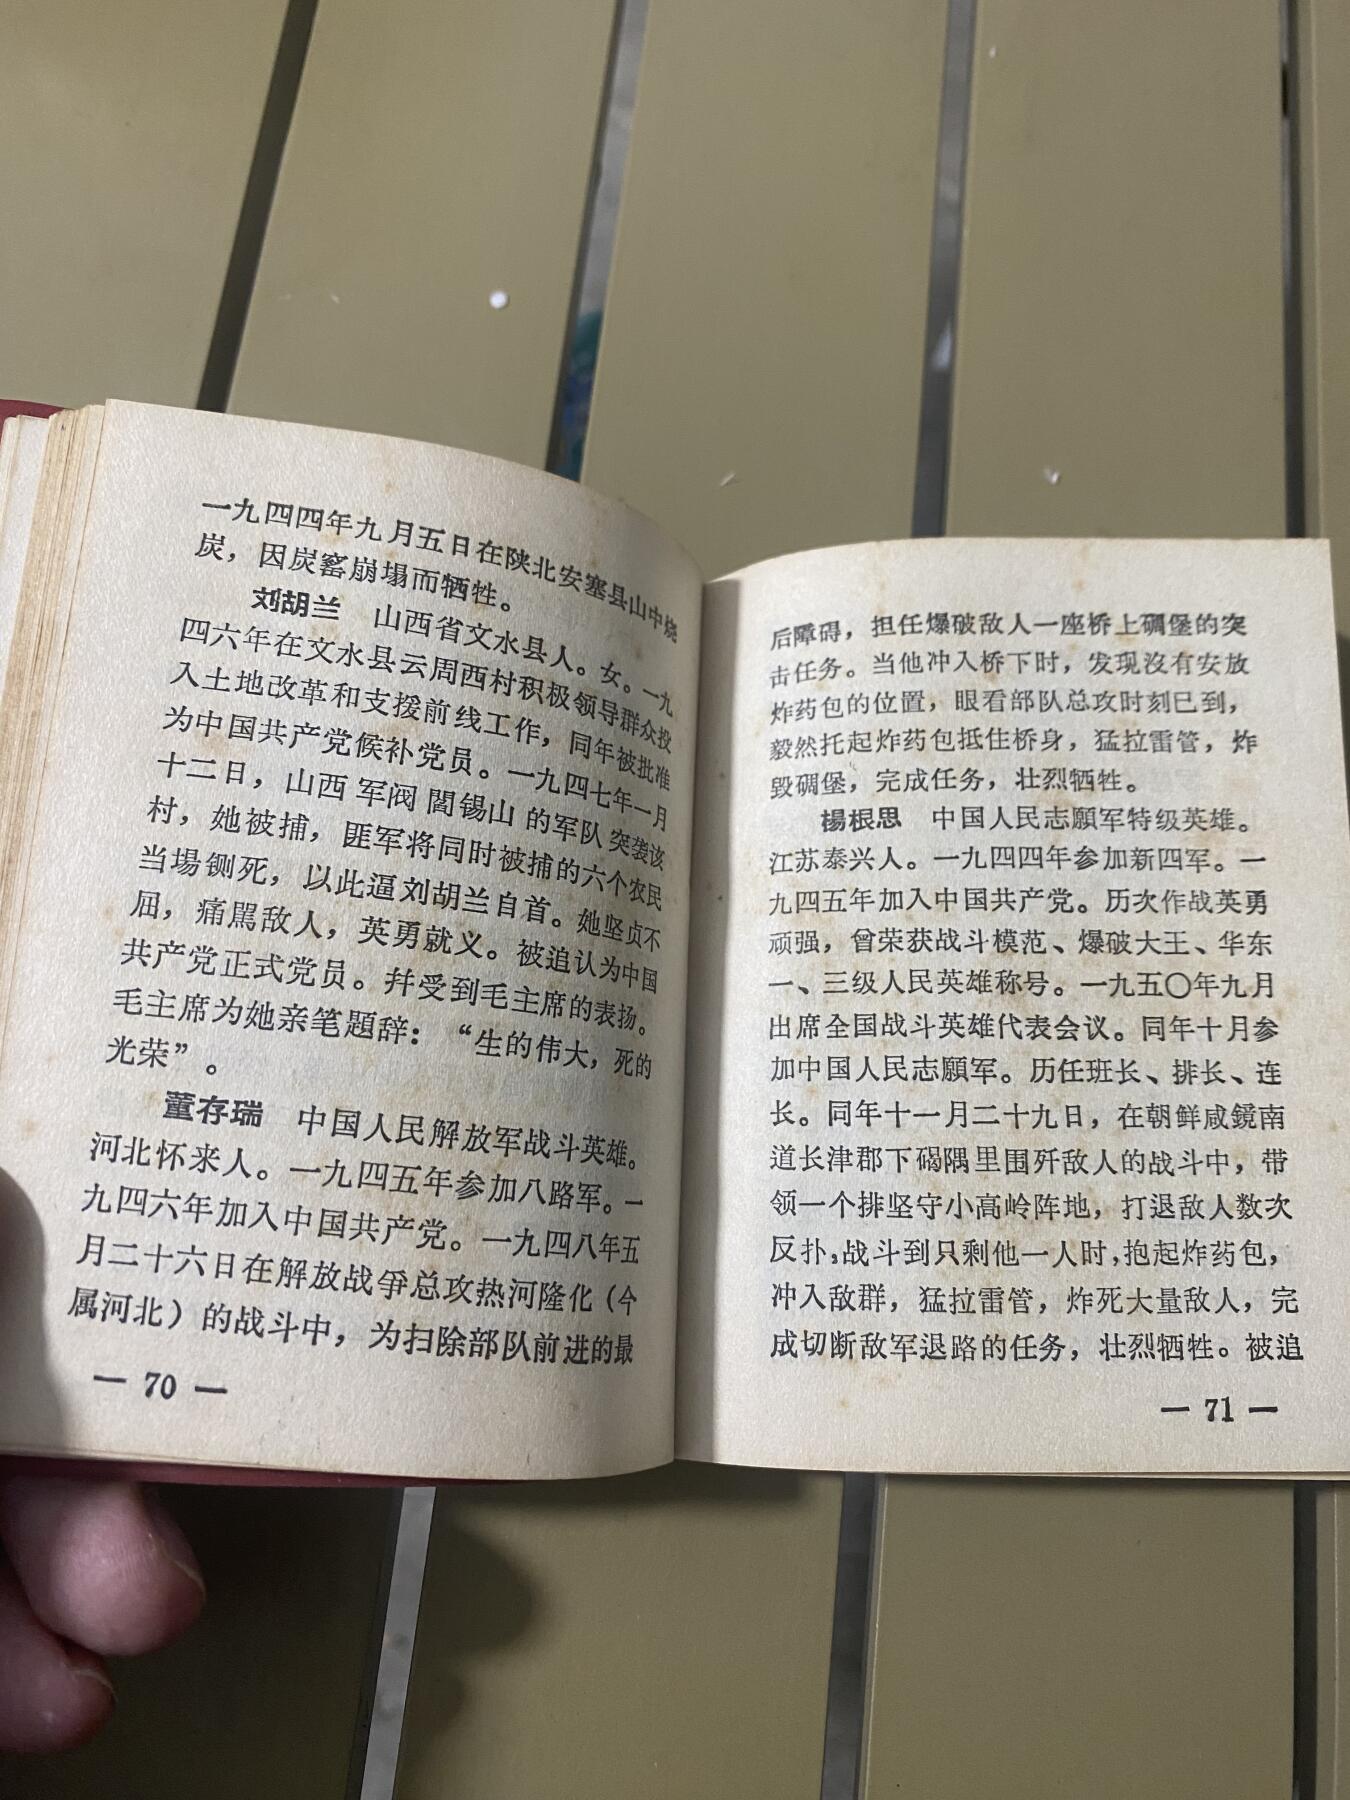 一九四四年九月五日在陕北安塞县山中烧
炭，因炭窰崩塌而牺牲。
刘胡兰　山西省文水县人。女。一九
四六年在文水县云周西村积极领导群众投
入土地改革和支援前线工作，同年被批准
为中国共产党候补党员。一九四七年一月
十二日，山西军阀閻锡山的军队突袭该
村，她被捕，匪军将同时被捕的六个农民
当場铡死，以此逼刘胡兰自首。她坚贞不
屈，痛駡敌人，英勇就义。被追认为中国
共产党正式党员。幷受到毛主席的表扬。
毛主席为她亲笔題辞：“生的伟大，死的
光荣”。
董存瑞　中国人民解放军战斗英雄。
河北怀来人。一九四五年参加八路军。一
九四六年加入中国共产党。一九四八年五
月二十六日在解放战爭总攻热河隆化（今
属河北）的战斗中，为扫除部队前进的最
— 70 —
后障碍，担任爆破敌人一座桥上碉堡的突
击任务。当他冲入桥下时，发现沒有安放
炸药包的位置，眼看部队总攻时刻已到，
毅然托起炸药包抵住桥身，猛拉雷管，炸
毁碉堡，完成任务，壮烈牺牲。
楊根思　中国人民志願军特级英雄。
江苏泰兴人。一九四四年参加新四军。一
九四五年加入中国共产党。历次作战英勇
顽强，曾荣获战斗模范、爆破大王、华东
一、三级人民英雄称号。一九五〇年九月
出席全国战斗英雄代表会议。同年十月参
加中国人民志願军。历任班长、排长、连
长。同年十一月二十九日，在朝鲜咸鏡南
道长津郡下碣隅里围歼敌人的战斗中，带
领一个排坚守小高岭阵地，打退敌人数次
反扑，战斗到只剩他一人时，抱起炸药包，
冲入敌群，猛拉雷管，炸死大量敌人，完
成切断敌军退路的任务，壮烈牺牲。被追
— 71 —